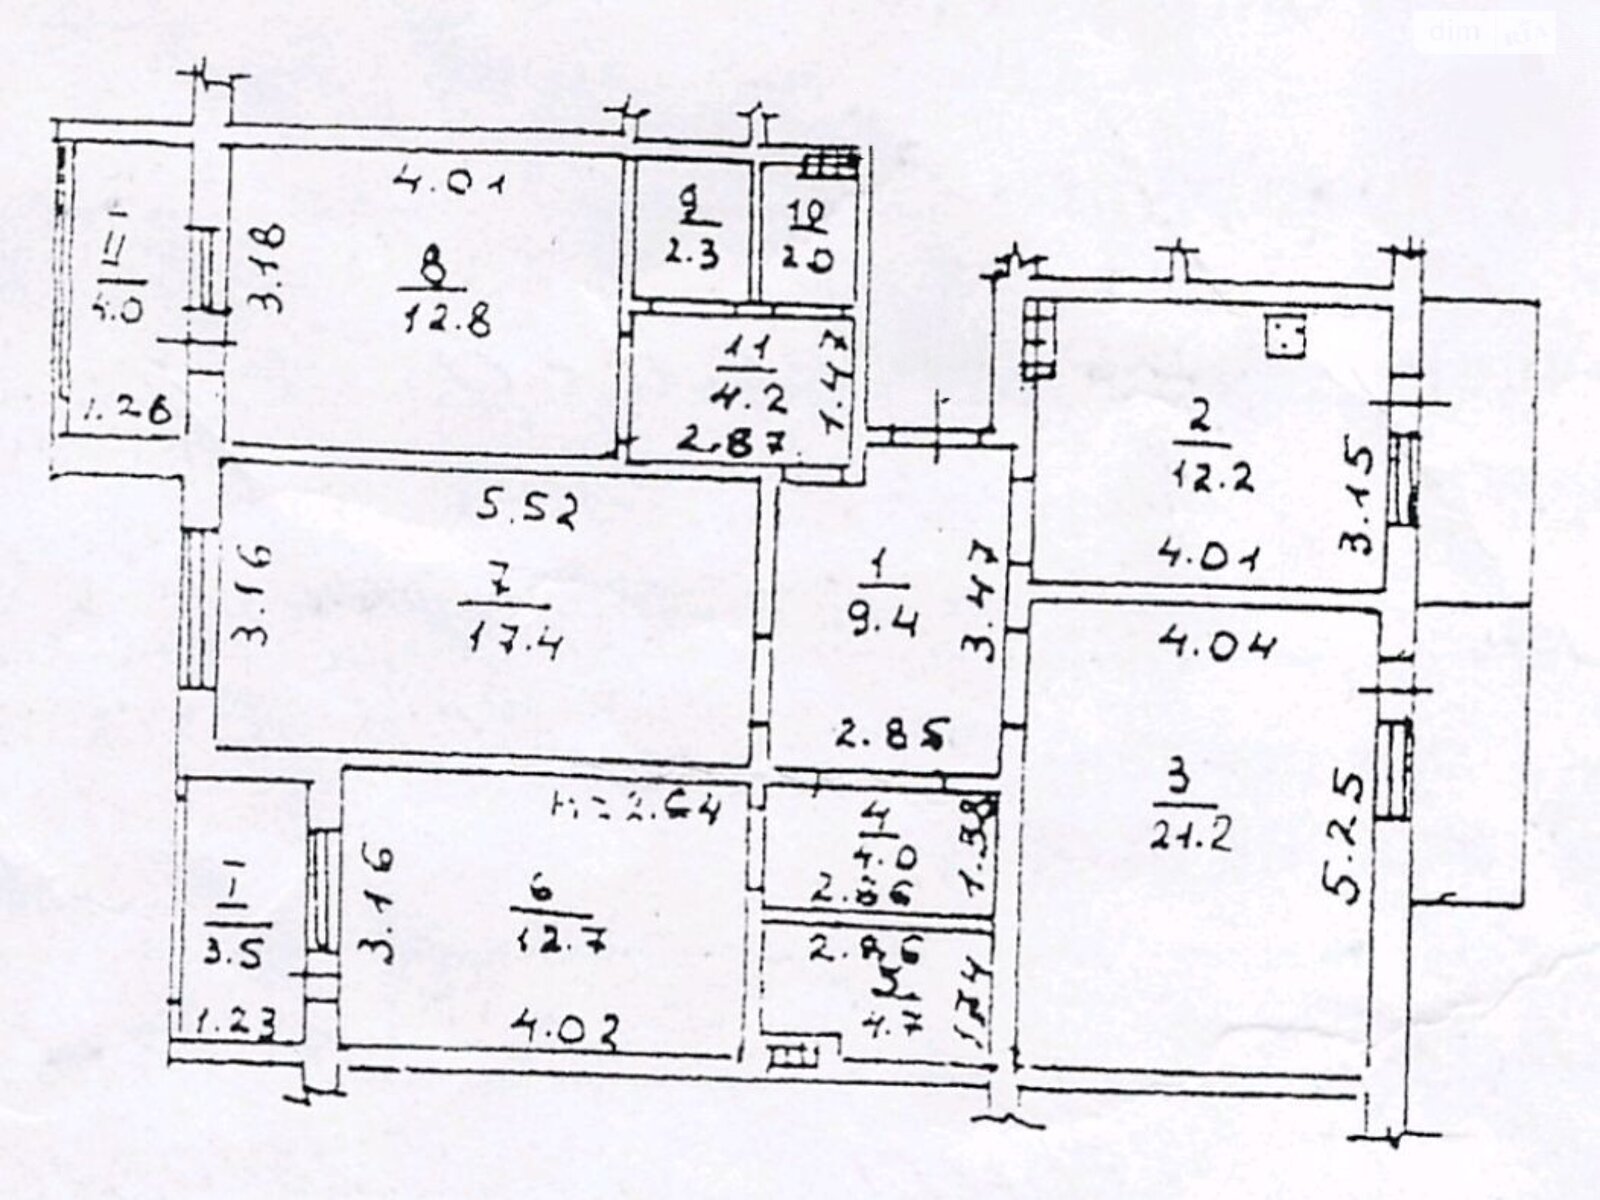 dim RIA
4.01
3.18
8
12.8
1.26
9
2.3
10
2.0
11
4.2
2.87
1.47
2
12.2
3.15
4.01
5.52
3.16
7
17.4
1
9.4
3.47
2.85
4.04
3
21.2
5.25
h=2.64
3.16
6
12.7
4.03
I-1
3.5
1.23
4
4.0
2.86
1.38
2.86
4.7